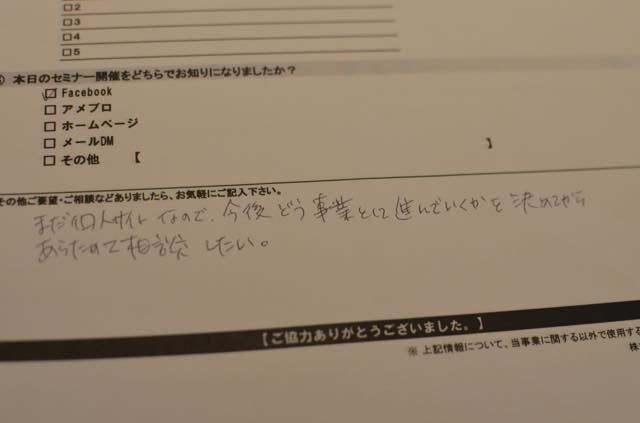 □2
□3
□4
□5
本日のセミナー開催をどちらでお知りになりましたか？
☑ Facebook
□ アメブロ
□ ホームページ
□ メールDM
□ その他 【 】
その他ご要望・ご相談などありましたら、お気軽にご記入下さい。
まだ個人サイトなので、今後どう事業として進んでいくかを決めてから
あらためて相談したい。
【ご協力ありがとうございました。】
※ 上記情報について、当事業に関する以外で使用する
株